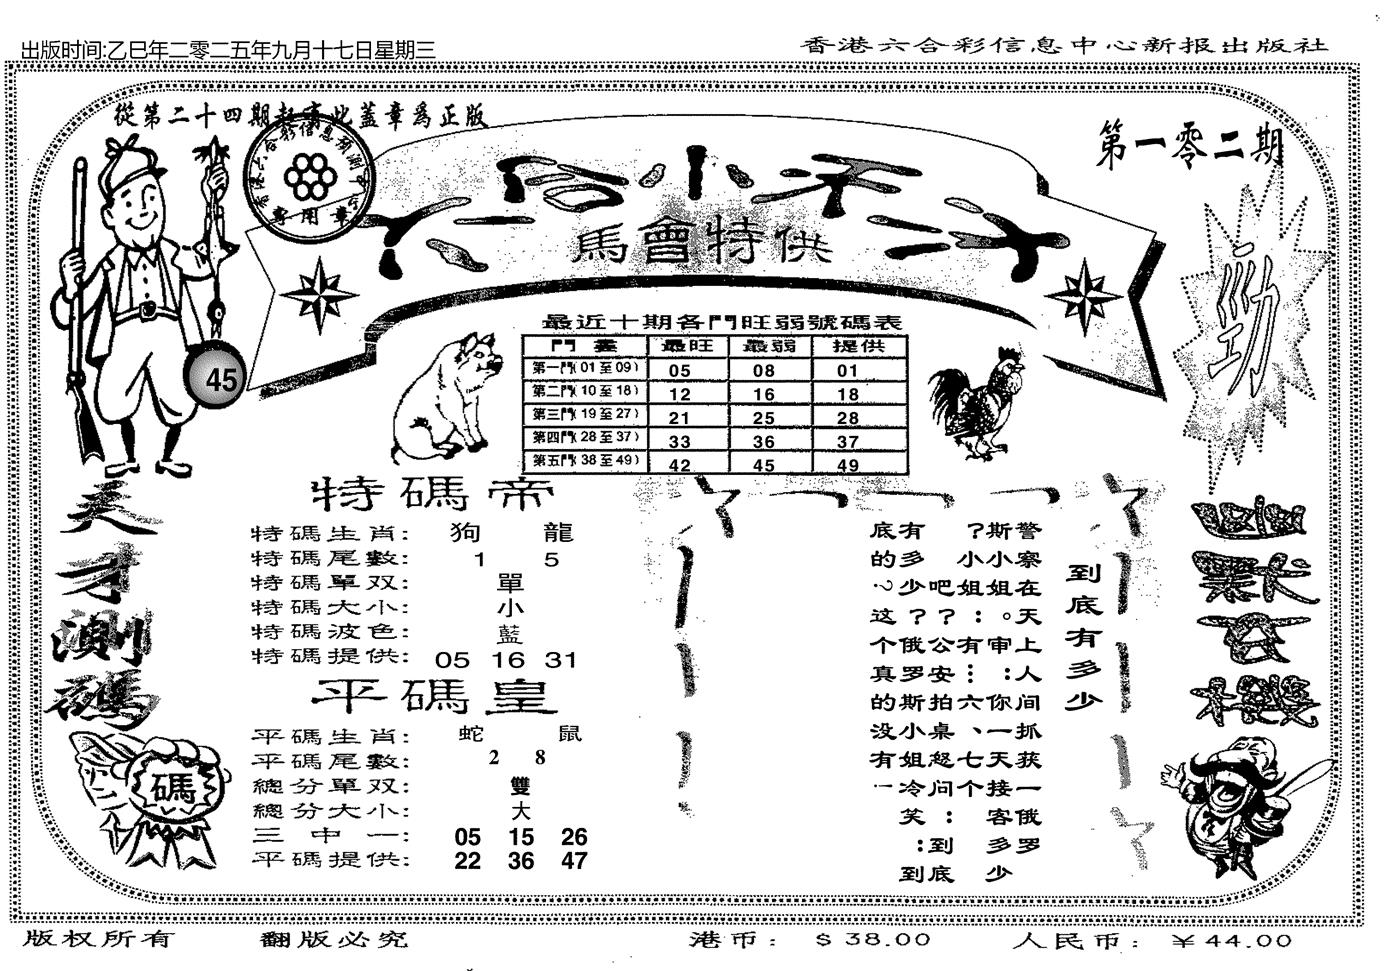 出版时间:乙巳年二零二五年九月十七日星期三
香港六合彩信息中心新报出版社
從第二十四期起有此蓋章爲正版
香港六合彩信息預測中心
專用章
第一零二期
六合小不大
馬會特供
勁
45
最近十期各門旺弱號碼表
門 最旺 最弱 提供
第一門(01至09) 05 08 01
第二門(10至18) 12 16 18
第三門(19至27) 21 25 28
第四門(28至37) 33 36 37
第五門(38至49) 42 45 49
天才測碼
碼
特碼帝
特碼生肖: 狗 龍
特碼尾數: 1 5
特碼單双: 單
特碼大小: 小
特碼波色: 藍
特碼提供: 05 16 31
平碼皇
平碼生肖: 蛇 鼠
平碼尾數: 2 8
總分單双: 雙
總分大小: 大
三中一: 05 15 26
平碼提供: 22 36 47
到底有多少
警察在天上人间抓获一俄罗
斯小姐。审:你一天接客多少
?小姐:有……六、七个
公安拍桌怒问:到底
有多少?俄罗斯小姐冷笑:到
底的多少?这个真的没有一
版权所有
翻版必究
港币: $38.00
人民币: ￥44.00